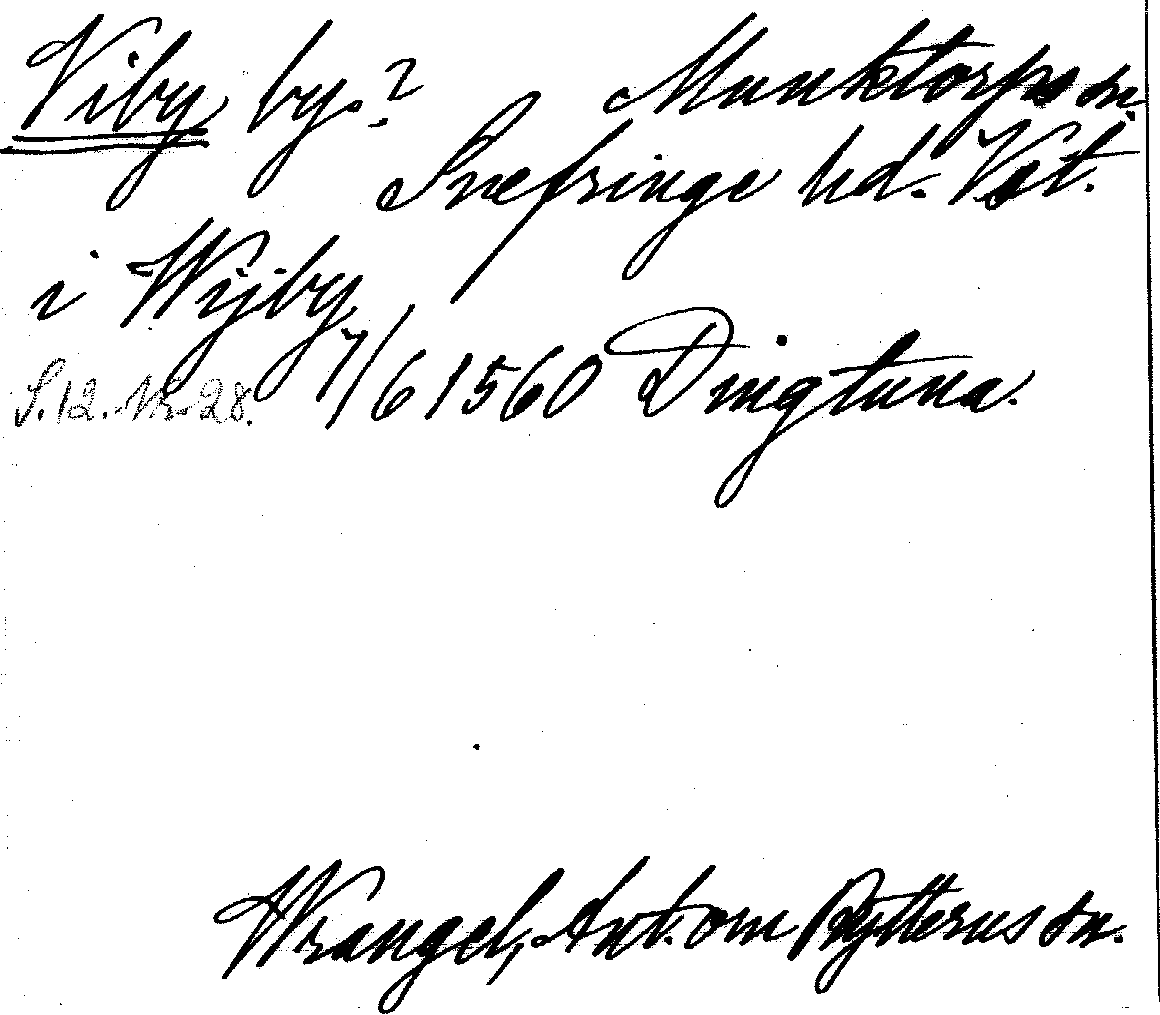 Viby by.? Munktorps sn.
Snefringe hd. Vst.
i Wijby
S. 12. Nr. 28. 7/6 1560 Dingtuna.
Wrangel, Ant. om Rytterns sn.